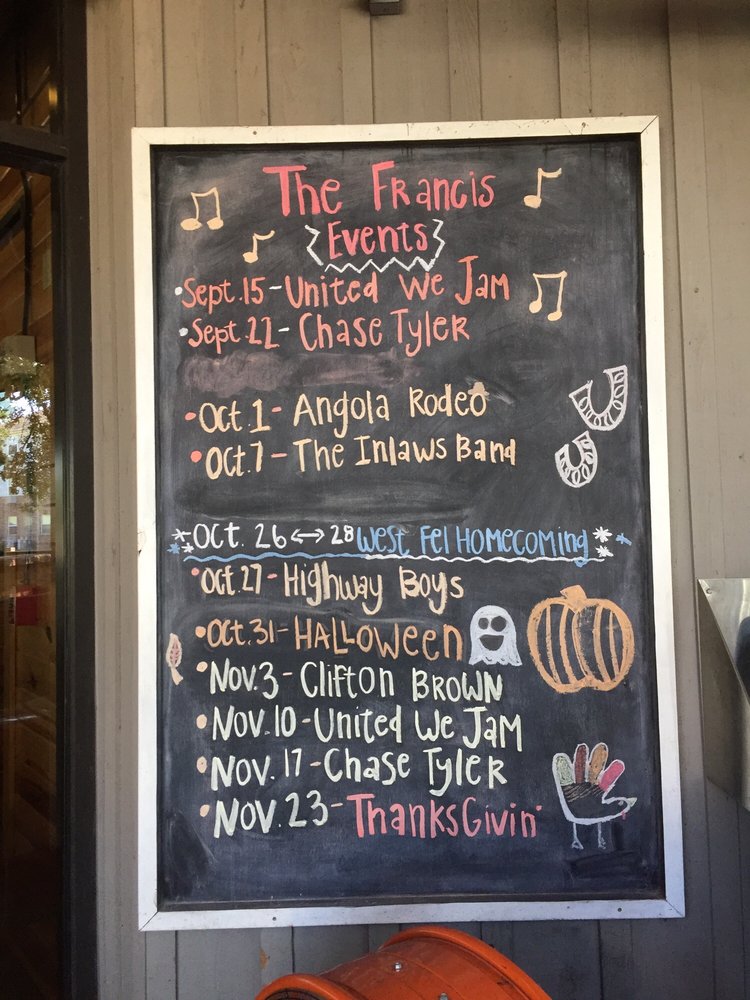 The Francis
Events
•Sept.15-United We Jam
•Sept.22-Chase Tyler
•Oct.1-Angola Rodeo
•Oct.7-The Inlaws Band
Oct. 26 ↔ 28 West Fel Homecoming
•Oct.27-Highway Boys
•Oct.31-HALLOWEEN
•Nov.3-Clifton BROWN
•Nov.10-United We Jam
•Nov.17-Chase Tyler
•Nov.23-ThanksGivin'